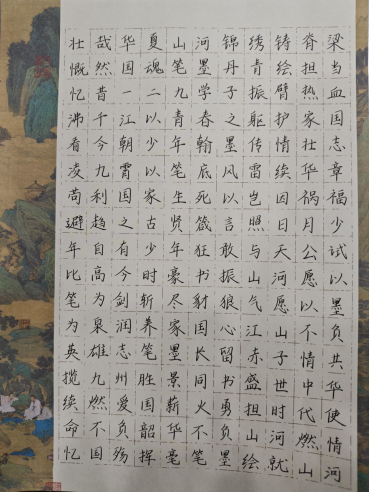 壮哉华夏山河锦绣铸脊梁
慨然国魂笔墨丹青绘担当
忆昔一二九学子振臂热血
沸千江以青春之躯护家国
看今朝少年翰墨传情壮志
凌九霄以笔底风雷续华章
苟利国家生死以岂因祸福
避趋之古贤箴言照日月少
年自有少年狂敢与天公试
比高今时豪书振山河愿以
笔为剑斩尽豺狼气愿以墨
为泉润养家国心江山不负
英雄志笔墨长留赤子情共
揽九州胜景同书盛世中华
续燃爱国薪火勇担时代使
命不负韶华不负山河燃情
忆国殇挥毫笔墨绘就山河